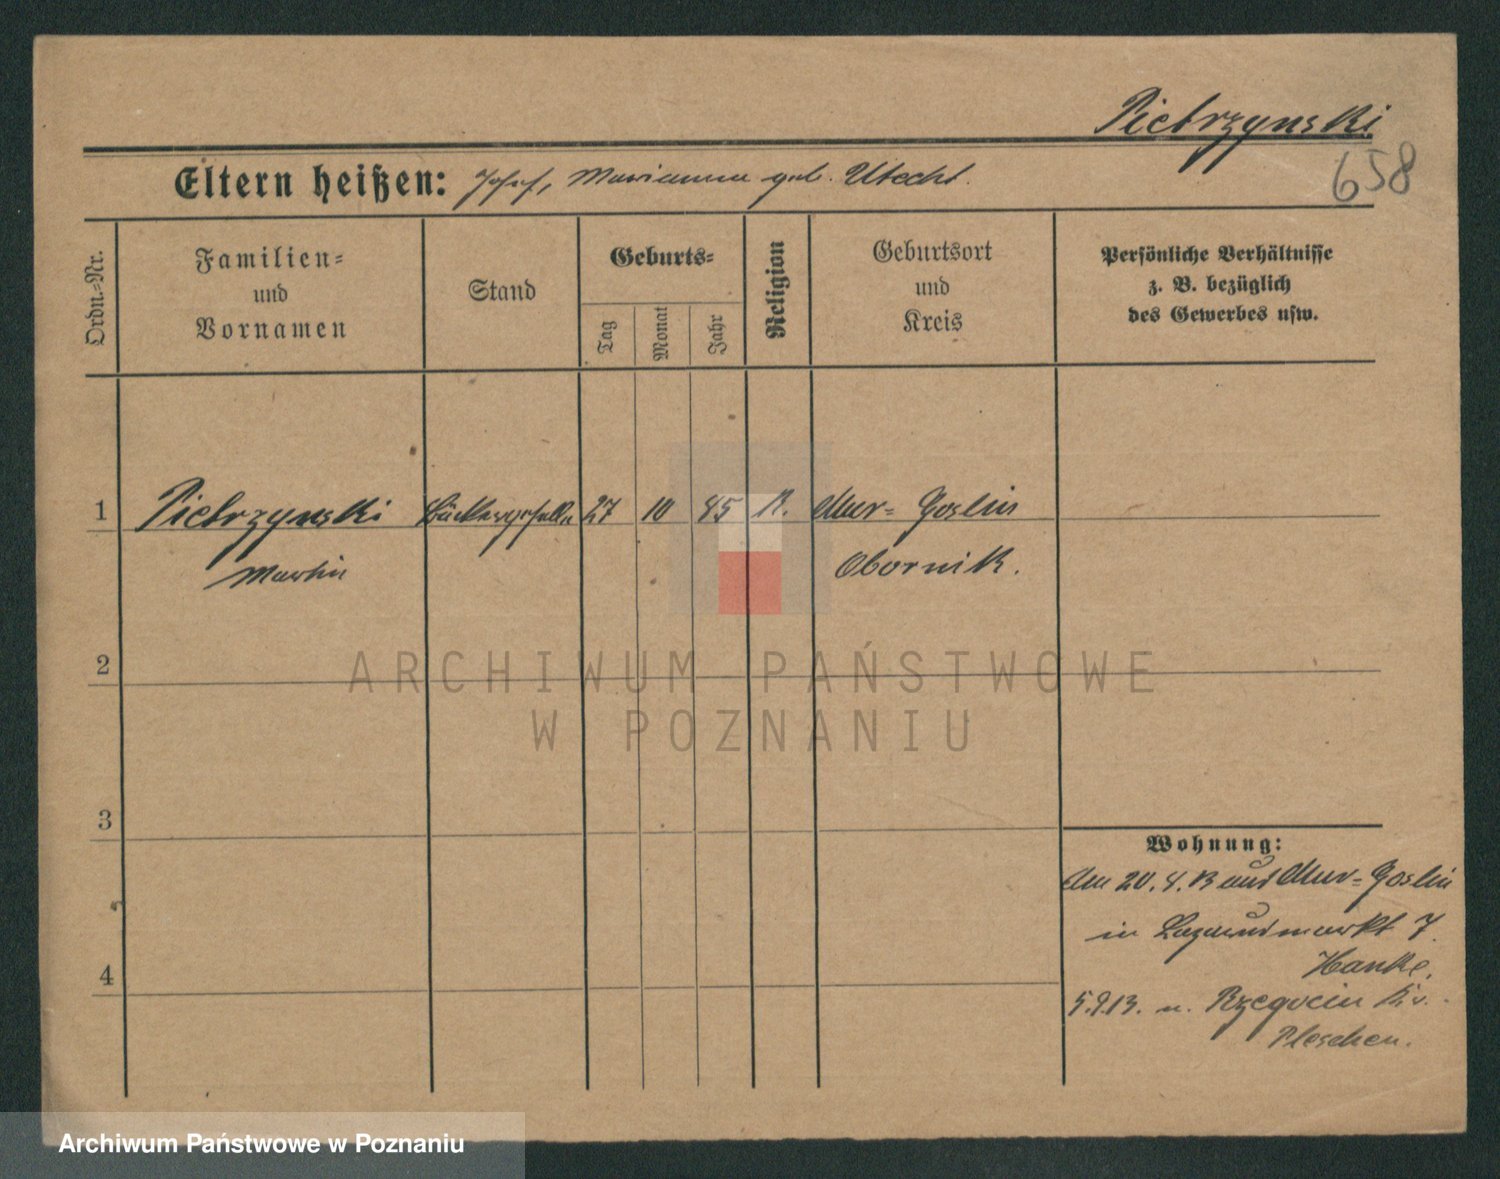 Pietrzynski
658
Eltern heißen: Josef, Marianna geb. Utecht.
Ordn.-Nr.
Familien-
und
Vornamen
Stand
Geburts-
Tag
Monat
Jahr
Religion
Geburtsort
und
Kreis
Persönliche Verhältnisse
z. B. bezüglich
des Gewerbes usw.
1 Pietrzynski Bäckergeselle 27 10 95 K. Mur- Goslin
Martin Obornik.
2
3
4
Wohnung:
Am 20.4.13 aus Mur- Goslin
in Lazarusmarkt 7.
Hanke.
5.9.13. n. Rzegocin Kr.
Pleschen.
ARCHIWUM PAŃSTWOWE
W POZNANIU
Archiwum Państwowe w Poznaniu